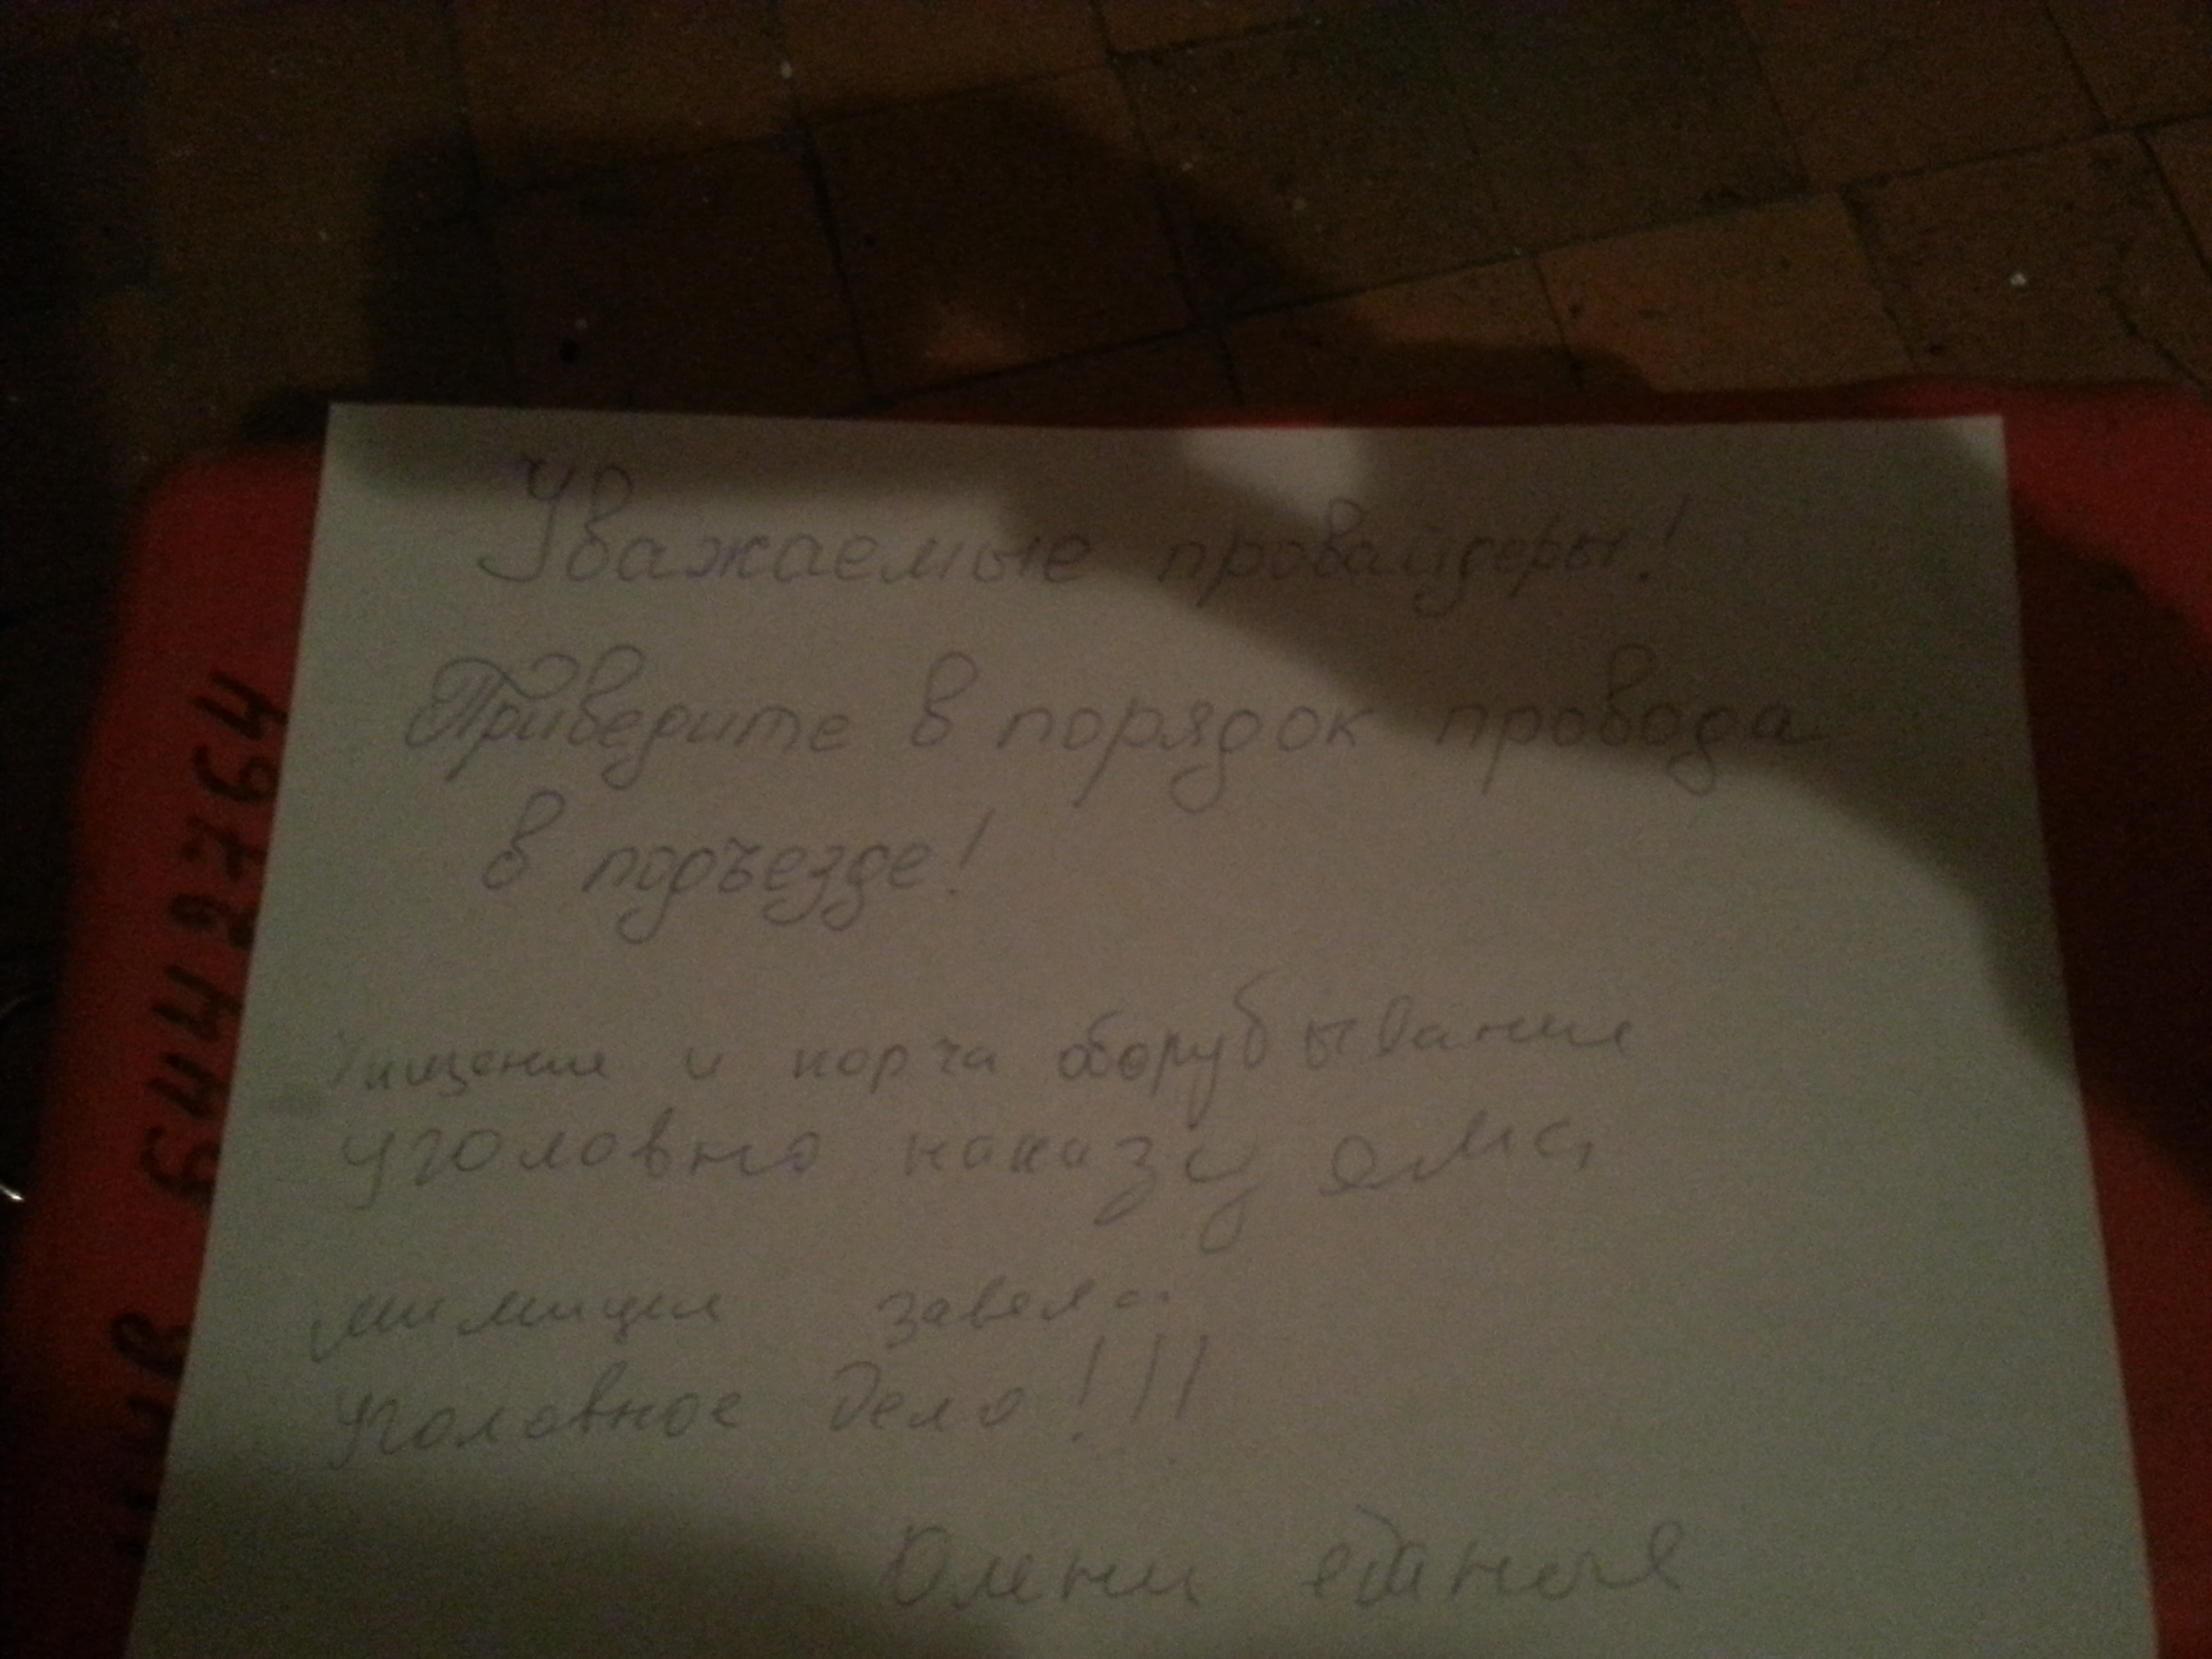 Уважаемые провайдеры!
Приведите в порядок провода
в подъезде!
Хищение и порча оборубывания
уголовно наказуемо
милиция завела
уголовное дело!!!
Олени
544 2764